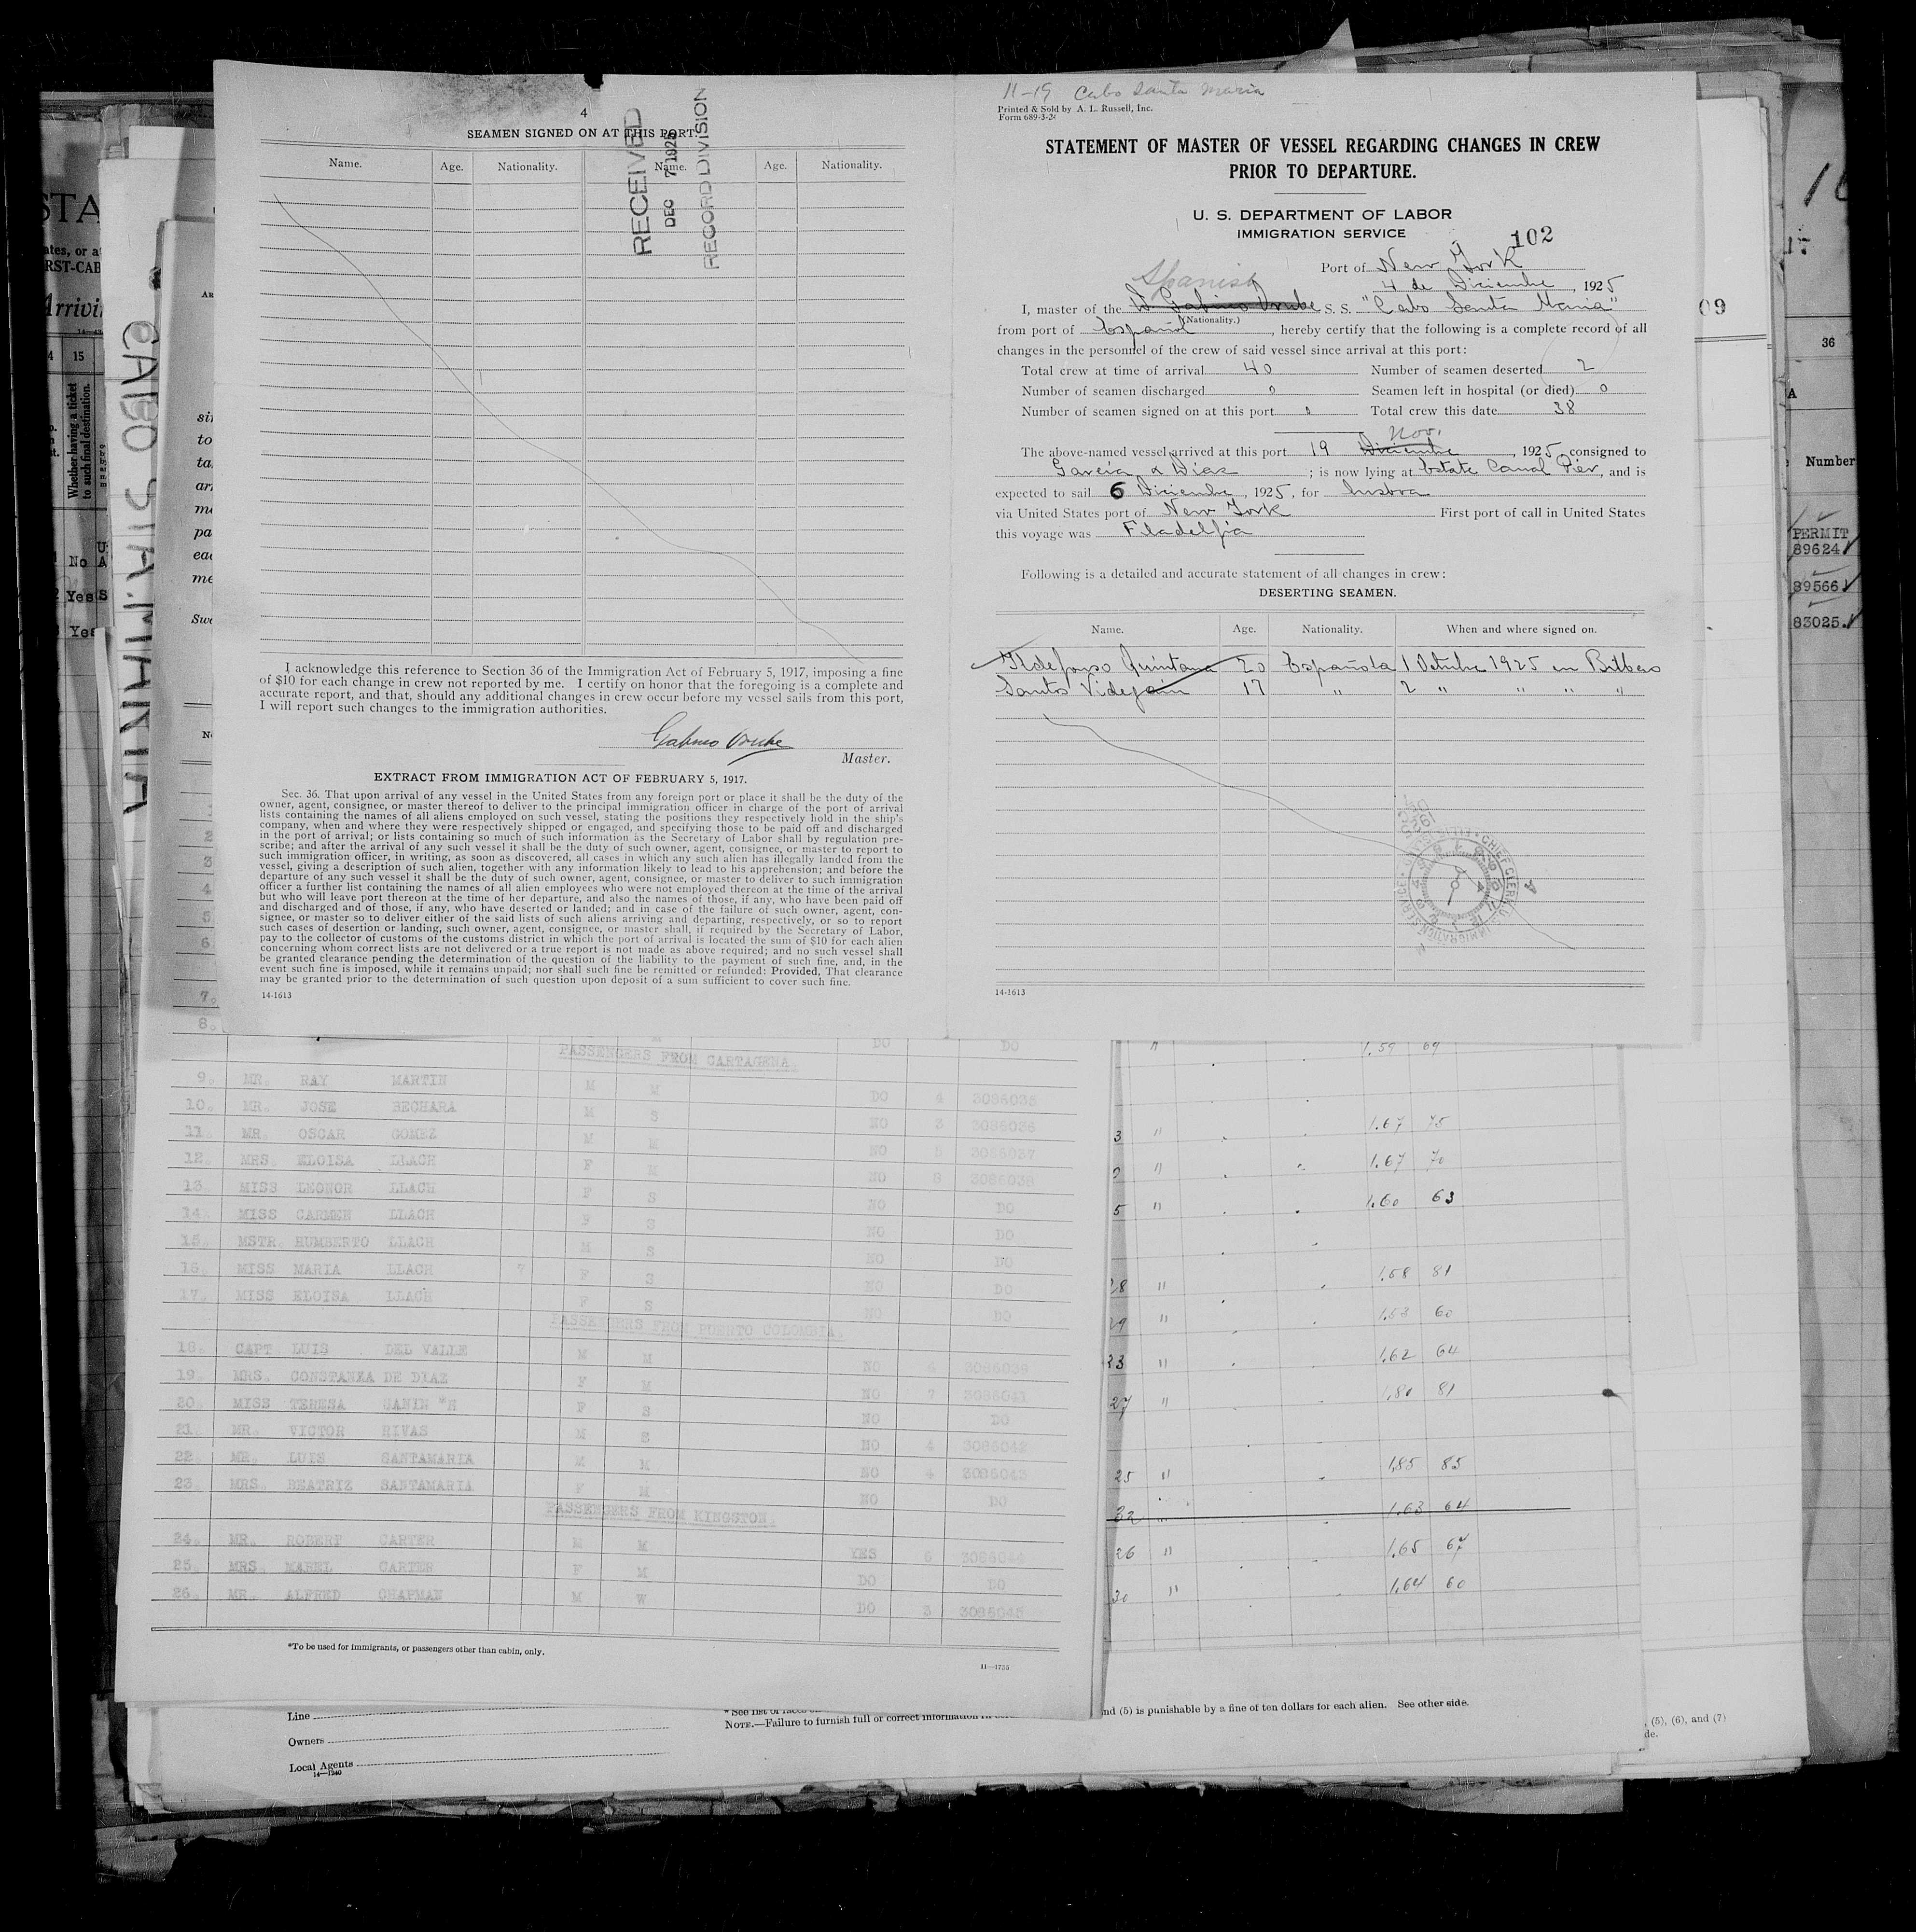 4
SEAMEN SIGNED ON AT THIS PORT.
Name. Age. Nationality. Name. Age. Nationality.
RECEIVED
DEC 7 1925
RECORD DIVISION
I acknowledge this reference to Section 36 of the Immigration Act of February 5, 1917, imposing a fine
of $10 for each change in crew not reported by me. I certify on honor that the foregoing is a complete and
accurate report, and that, should any additional changes in crew occur before my vessel sails from this port,
I will report such changes to the immigration authorities.
Gabino
Master.
EXTRACT FROM IMMIGRATION ACT OF FEBRUARY 5, 1917.
Sec. 36. That upon arrival of any vessel in the United States from any foreign port or place it shall be the duty of the
owner, agent, consignee, or master thereof to deliver to the principal immigration officer in charge of the port of arrival
lists containing the names of all aliens employed on such vessel, stating the positions they respectively hold in the ship's
company, when and where they were respectively shipped or engaged, and specifying those to be paid off and discharged
in the port of arrival; or lists containing so much of such information as the Secretary of Labor shall by regulation pre-
scribe; and after the arrival of any such vessel it shall be the duty of such owner, agent, consignee, or master to report to
such immigration officer, in writing, as soon as discovered, all cases in which any such alien has illegally landed from the
vessel, giving a description of such alien, together with any information likely to lead to his apprehension; and before the
departure of any such vessel it shall be the duty of such owner, agent, consignee, or master to deliver to such immigration
officer a further list containing the names of all alien employees who were not employed thereon at the time of the arrival
but who will leave port thereon at the time of her departure, and also the names of those, if any, who have been paid off
and discharged and of those, if any, who have deserted or landed; and in case of the failure of such owner, agent, con-
signee, or master so to deliver either of the said lists of such aliens arriving and departing, respectively, or so to report
such cases of desertion or landing, such owner, agent, consignee, or master shall, if required by the Secretary of Labor,
pay to the collector of customs of the customs district in which the port of arrival is located the sum of $10 for each alien
concerning whom correct lists are not delivered or a true report is not made as above required; and no such vessel shall
be granted clearance pending the determination of the question of the liability to the payment of such fine, and, in the
event such fine is imposed, while it remains unpaid; nor shall such fine be remitted or refunded: Provided, That clearance
may be granted prior to the determination of such question upon deposit of a sum sufficient to cover such fine.
14-1613
11-19 Cabo Santa Maria
Printed & Sold by A. L. Russell, Inc.
Form 689-3-24
STATEMENT OF MASTER OF VESSEL REGARDING CHANGES IN CREW
PRIOR TO DEPARTURE.
U. S. DEPARTMENT OF LABOR
IMMIGRATION SERVICE
102
Port of New York
Spanish
4 de Diciembre, 1925
I, master of the S. S. "Cabo Santa Maria"
(Nationality.)
from port of Español, hereby certify that the following is a complete record of all
changes in the personnel of the crew of said vessel since arrival at this port:
Total crew at time of arrival 40 Number of seamen deserted 2
Number of seamen discharged 0 Seamen left in hospital (or died) 0
Number of seamen signed on at this port 0 Total crew this date 38
Nov.
The above-named vessel arrived at this port 19 Diciembre, 1925 consigned to
Garcia & Diaz; is now lying at Estate Canal Pier, and is
expected to sail 6 Diciembre, 1925, for
via United States port of New York First port of call in United States
this voyage was Filadelfia
Following is a detailed and accurate statement of all changes in crew:
DESERTING SEAMEN.
Name. Age. Nationality. When and where signed on.
Ildefonso Quintana 20 Española 1 Octubre 1925 en Bilbao
Santos 17 " 2 " " " "
CHIEF CLERK
14-1613
CABO STA. MARIA
PASSENGERS FROM CARTAGENA.
9. MR. RAY MARTIN M M DO 4 3086035
10. MR. JOSE BECHARA M S NO 3 3086036
11. MR. OSCAR GOMEZ M M NO 5 3086037
12. MRS. ELOISA LLACH F M NO 8 3086038
13. MISS LEONOR LLACH F S NO DO
14. MISS CARMEN LLACH F S NO DO
15. MSTR. HUMBERTO LLACH M S NO DO
16. MISS MARIA LLACH 7 F S NO DO
17. MISS ELOISA LLACH F S NO DO
PASSENGERS FROM PUERTO COLOMBIA.
18. CAPT. LUIS DEL VALLE M M NO 4 3086039
19. MRS. CONSTANZA DE DIAZ F M NO 7 3086041
20. MISS TERESA SANIN F S NO DO
21. MR. VICTOR RIVAS M S NO 4 3086042
22. MR. LUIS SANTAMARIA M M NO 4 3086043
23. MRS. BEATRIZ SANTAMARIA F M NO DO
PASSENGERS FROM KINGSTON.
24. MR. ROBERT CARTER M M YES 6 3086044
25. MRS MABEL CARTER F M DO DO
26. MR. ALFRED CHAPMAN M W DO 3 3086045
*To be used for immigrants, or passengers other than cabin, only.
11—1735
" 1.59 69
3 " 1.67 75
" 1.67 70
5 " 1.60 63
28 " 1.58 81
29 " 1.53 60
33 " 1.62 64
27 " 1.80 81
25 " 1.85 85
32 " 1.63 64
26 " 1.65 67
30 " 1.64 60
Line
Owners
Local Agents
14—1240
NOTE.—Failure to furnish full or correct information
nd (5) is punishable by a fine of ten dollars for each alien. See other side.
, (5), (6), and (7)
de.
09
36
Number
PERMIT
89624
89566
83025
STA
ates, or a
RST-CAB
Arrivi
15
Whether having a ticket
to such final destination.
No
Yes
Yes